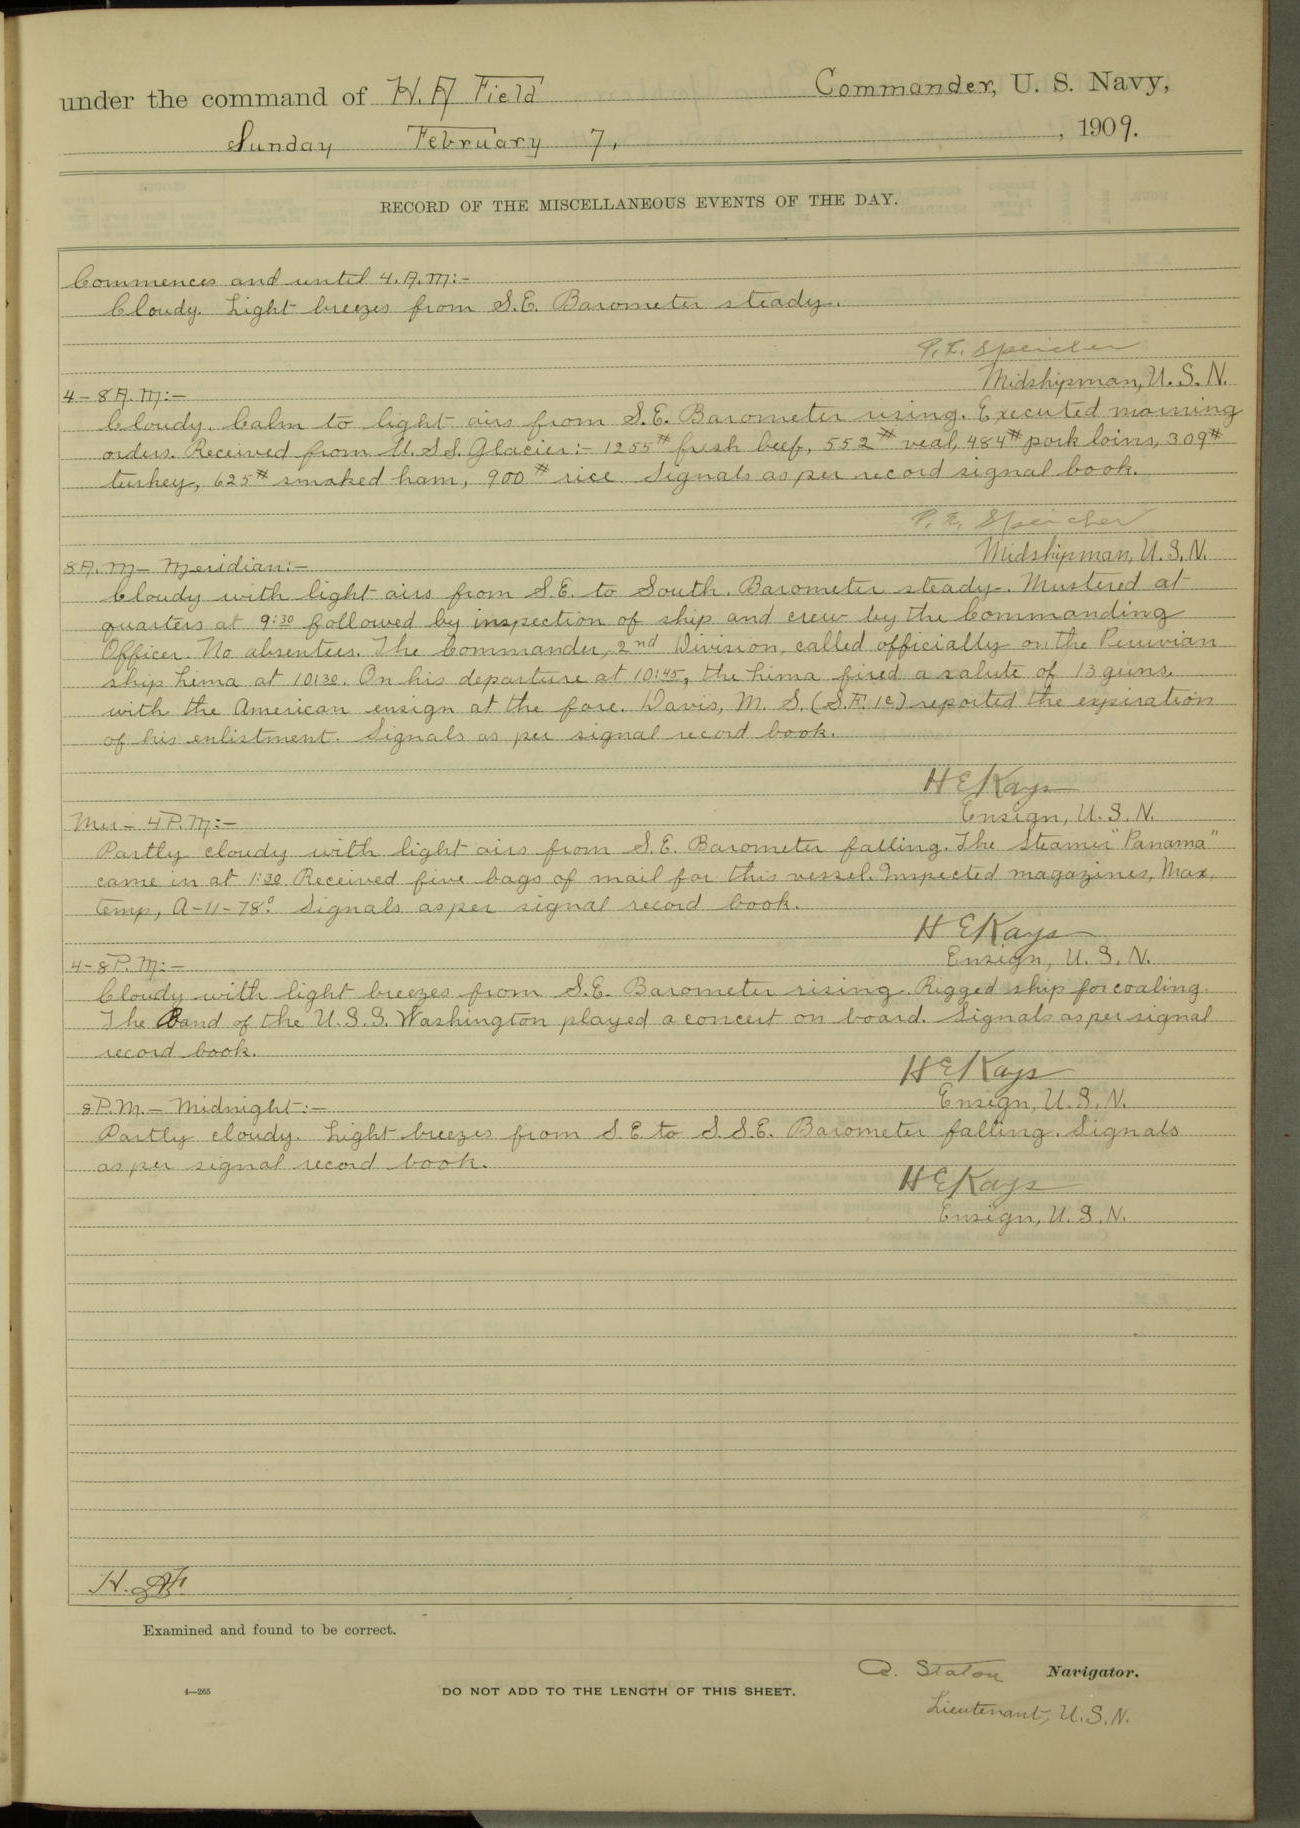 under the command of H. A Field Commander, U. S. Navy,
Sunday February 7, , 1909.
RECORD OF THE MISCELLANEOUS EVENTS OF THE DAY.
Commences and until 4. A. M:-
Cloudy. Light breezes from S.E. Barometer steady.
P. E. Speicher
Midshipman, U. S. N.
4-8 A. M:-
Cloudy. Calm to light airs from S.E. Barometer rising. Executed morning
orders. Received from U. S. S. Glacier:- 1255# fresh beef, 552# veal, 484# pork loins, 309#
turkey, 625# smoked ham, 900# rice Signals as per record signal book.
P. E. Speicher
Midshipman, U. S. N.
8 A. M- Meridian:-
Cloudy with light airs from S.E. to South. Barometer steady. Mustered at
quarters at 9:30 followed by inspection of ship and crew by the Commanding
Officer. No absentees. The Commander, 2nd Division, called officially on the Peruvian
ship Lima at 10:30. On his departure at 10:45, the Lima fired a salute of 13 guns.
with the American ensign at the fore. Davis, M. S. (S.F. 1c) reported the expiration
of his enlistment. Signals as per signal record book.
H E Kays
Ensign, U. S. N.
Mer- 4 P. M:-
Partly cloudy with light airs from S.E. Barometer falling. The Steamer "Panama"
came in at 1:30. Received five bags of mail for this vessel. Inspected magazines, Max.
temp, A-11-78°. Signals as per signal record book.
H E Kays
Ensign, U. S. N.
4-8 P. M:-
Cloudy with light breezes from S.E. Barometer rising. Rigged ship for coaling.
The Band of the U. S. S. Washington played a concert on board. Signals as per signal
record book.
H E Kays
Ensign, U. S. N.
8 P. M.- Midnight:-
Partly cloudy. Light breezes from S.E to S.S.E. Barometer falling. Signals
as per signal record book.
H E Kays
Ensign, U. S. N.
H.
Examined and found to be correct.
A. Staton Navigator.
4—265 DO NOT ADD TO THE LENGTH OF THIS SHEET.
Lieutenant, U. S. N.